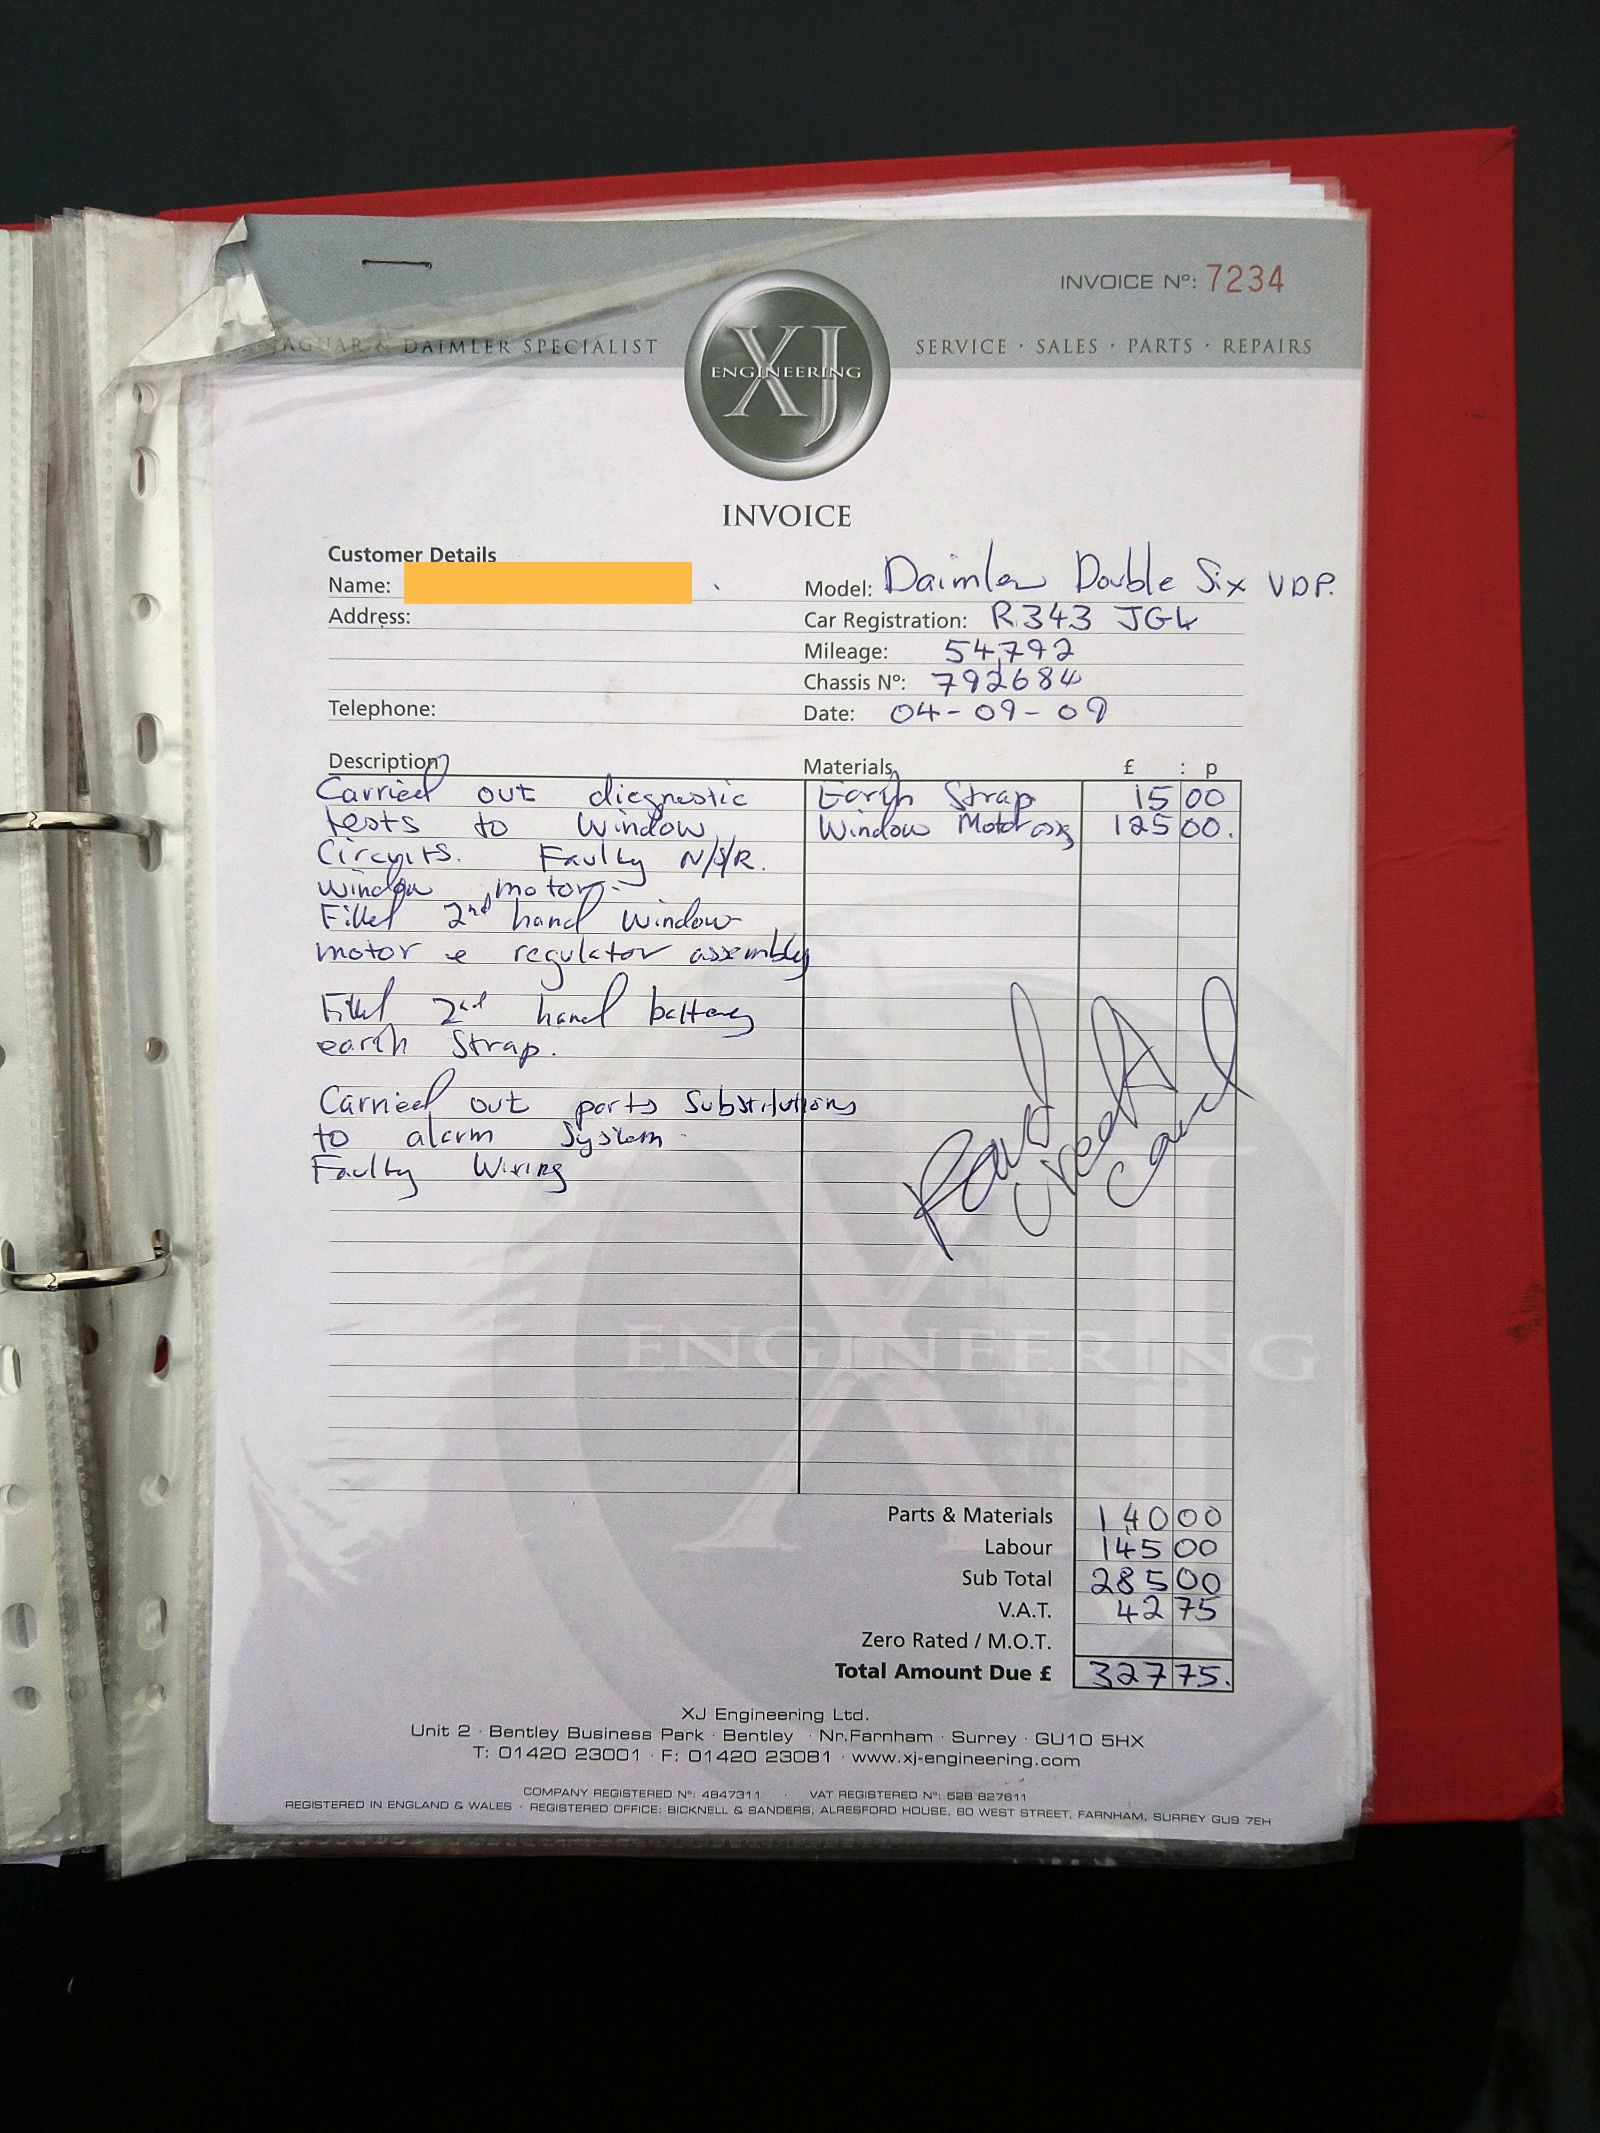 INVOICE Nº: 7234
JAGUAR & DAIMLER SPECIALIST
XJ
ENGINEERING
SERVICE · SALES · PARTS · REPAIRS
INVOICE
Customer Details
Name:
Model: Daimler Double Six VDP.
Address:
Car Registration: R343 JGW
Mileage: 54,792
Chassis Nº: 792684
Telephone:
Date: 04-09-09
Description Materials £ : p
Carried out diagnostic Earth Strap 15 00
tests to Window Window Motor assy 125 00.
Circuits. Faulty N/S/R.
window motor.
Fitted 2nd hand window
motor & regulator assembly
Fitted 2nd hand battery
earth Strap.
Carried out parts Substitutions
to alarm System.
Faulty Wiring
Paid
Credit
Card
ENGINEERING
Parts & Materials 140 00
Labour 145 00
Sub Total 285 00
V.A.T. 42 75
Zero Rated / M.O.T.
Total Amount Due £ 327 75.
XJ Engineering Ltd.
Unit 2 · Bentley Business Park · Bentley · Nr.Farnham · Surrey · GU10 5HX
T: 01420 23001 · F: 01420 23081 · www.xj-engineering.com
COMPANY REGISTERED Nº: 4847311 · VAT REGISTERED Nº: 528 827611
REGISTERED IN ENGLAND & WALES · REGISTERED OFFICE: BICKNELL & SANDERS, ALRESFORD HOUSE, 60 WEST STREET, FARNHAM, SURREY GU9 7EH